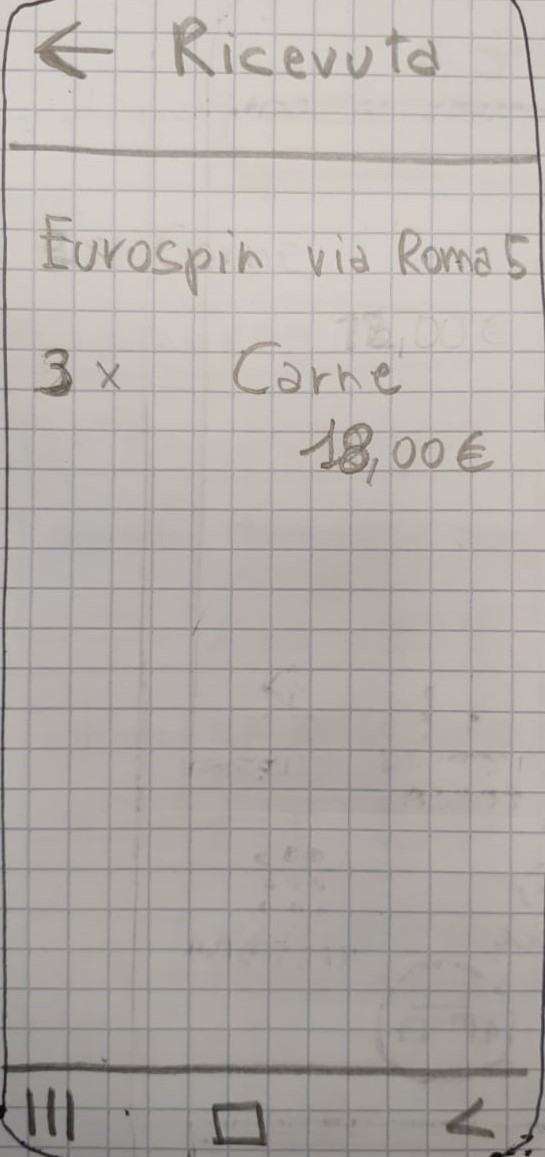 ← Ricevuta
Eurospin via Roma 5
3 x Carne
18,00 €